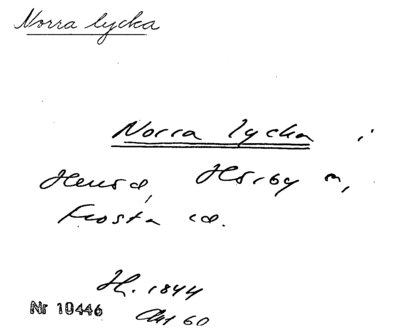 Norra lycka
Norra lycka i
Hörby
Frosta
H. 1844
Nr 10446
Akt 60